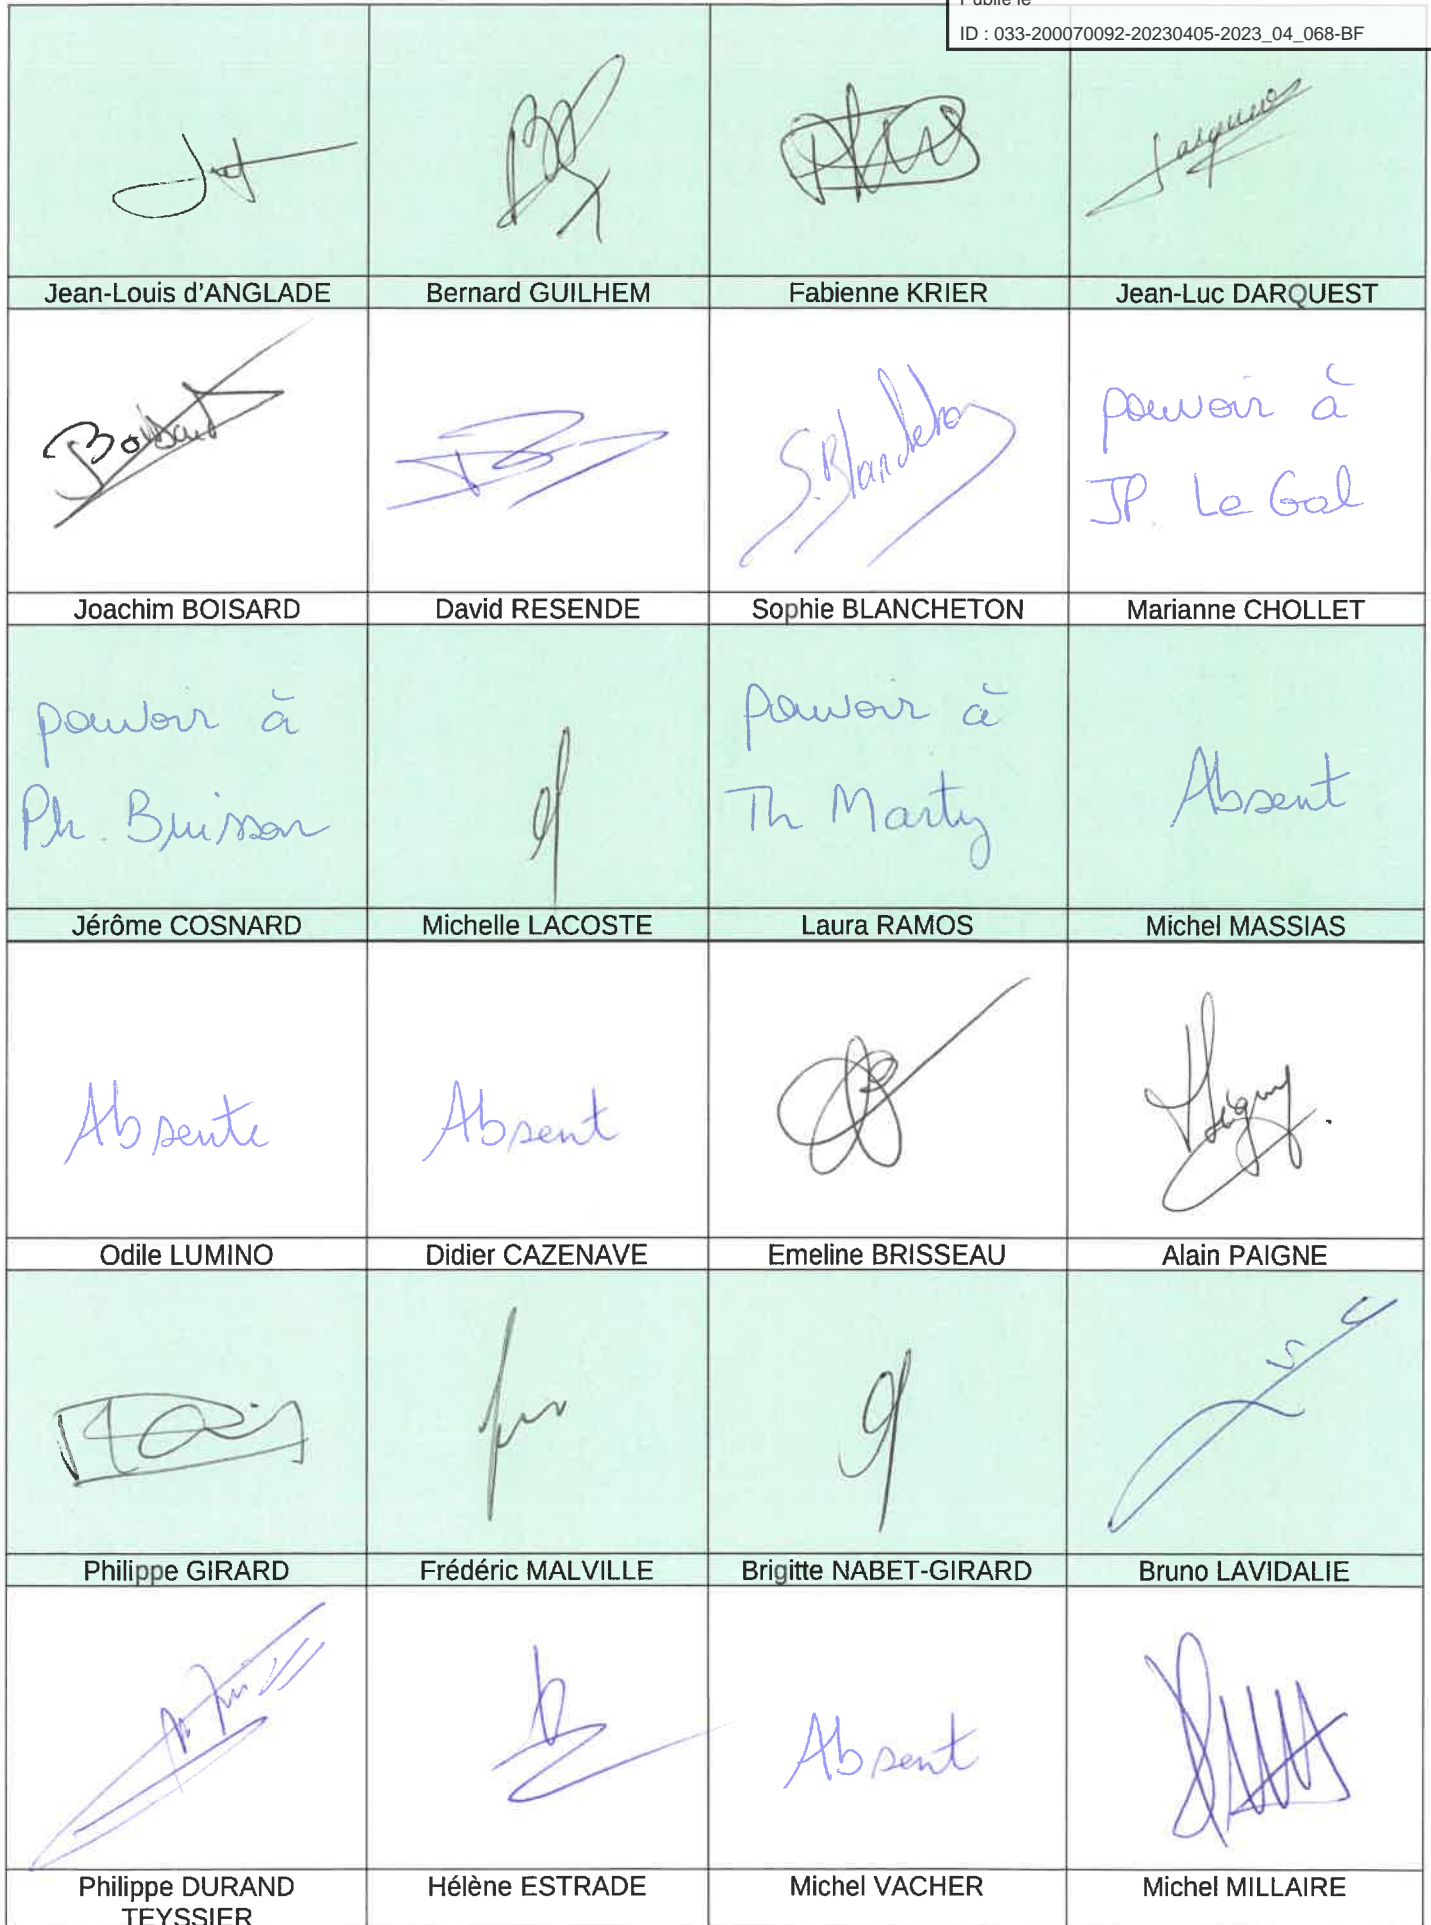 Publié le
ID : 033-200070092-20230405-2023_04_068-BF
Jean-Louis d'ANGLADE
Bernard GUILHEM
Fabienne KRIER
Jean-Luc DARQUEST
Boisard
S. Blancheton
pouvoir à
JP. Le Gal
Joachim BOISARD
David RESENDE
Sophie BLANCHETON
Marianne CHOLLET
pouvoir à
Ph. Buisson
pouvoir à
Th Marty
Absent
Jérôme COSNARD
Michelle LACOSTE
Laura RAMOS
Michel MASSIAS
Absente
Absent
Odile LUMINO
Didier CAZENAVE
Emeline BRISSEAU
Alain PAIGNE
Philippe GIRARD
Frédéric MALVILLE
Brigitte NABET-GIRARD
Bruno LAVIDALIE
Absent
Philippe DURAND
TEYSSIER
Hélène ESTRADE
Michel VACHER
Michel MILLAIRE